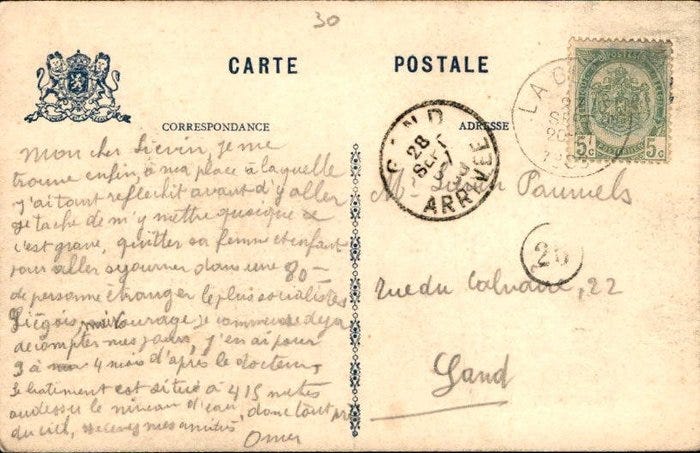 30
CARTE POSTALE
CORRESPONDANCE
ADRESSE
Mon cher Liévin, je me
trouve enfin, à ma place à laquelle
j'ai tant reflechit avant d'y aller
je tache de m'y mettre quoique ce
c'est grave, quitter sa femme et enfant
pour aller sejourner dans une 80-
de personne étranger le plus socialistes
Liégois, courage, je commence deja
de compter mes jours, j'en ai pour
3 à 4 mois d'après le docteur,
le batiment est situé à 415 metres
audessus le niveau d'eau, donc tout
du ciel, recevez mes amitiés
Omer
GAND
28
SEPT
ARRIVEE
LA
SEPT
POSTES
5c 5c
M. Liévin Pauwels
26
rue du Calvaire, 22
Gand